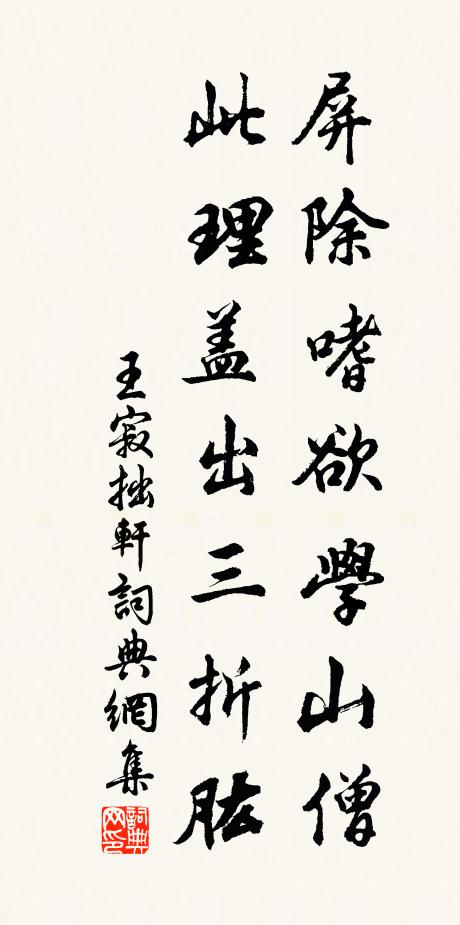 屏除嗜欲學山僧
此理盖出三折肱
王寂拙軒詞典網集
詞典网印